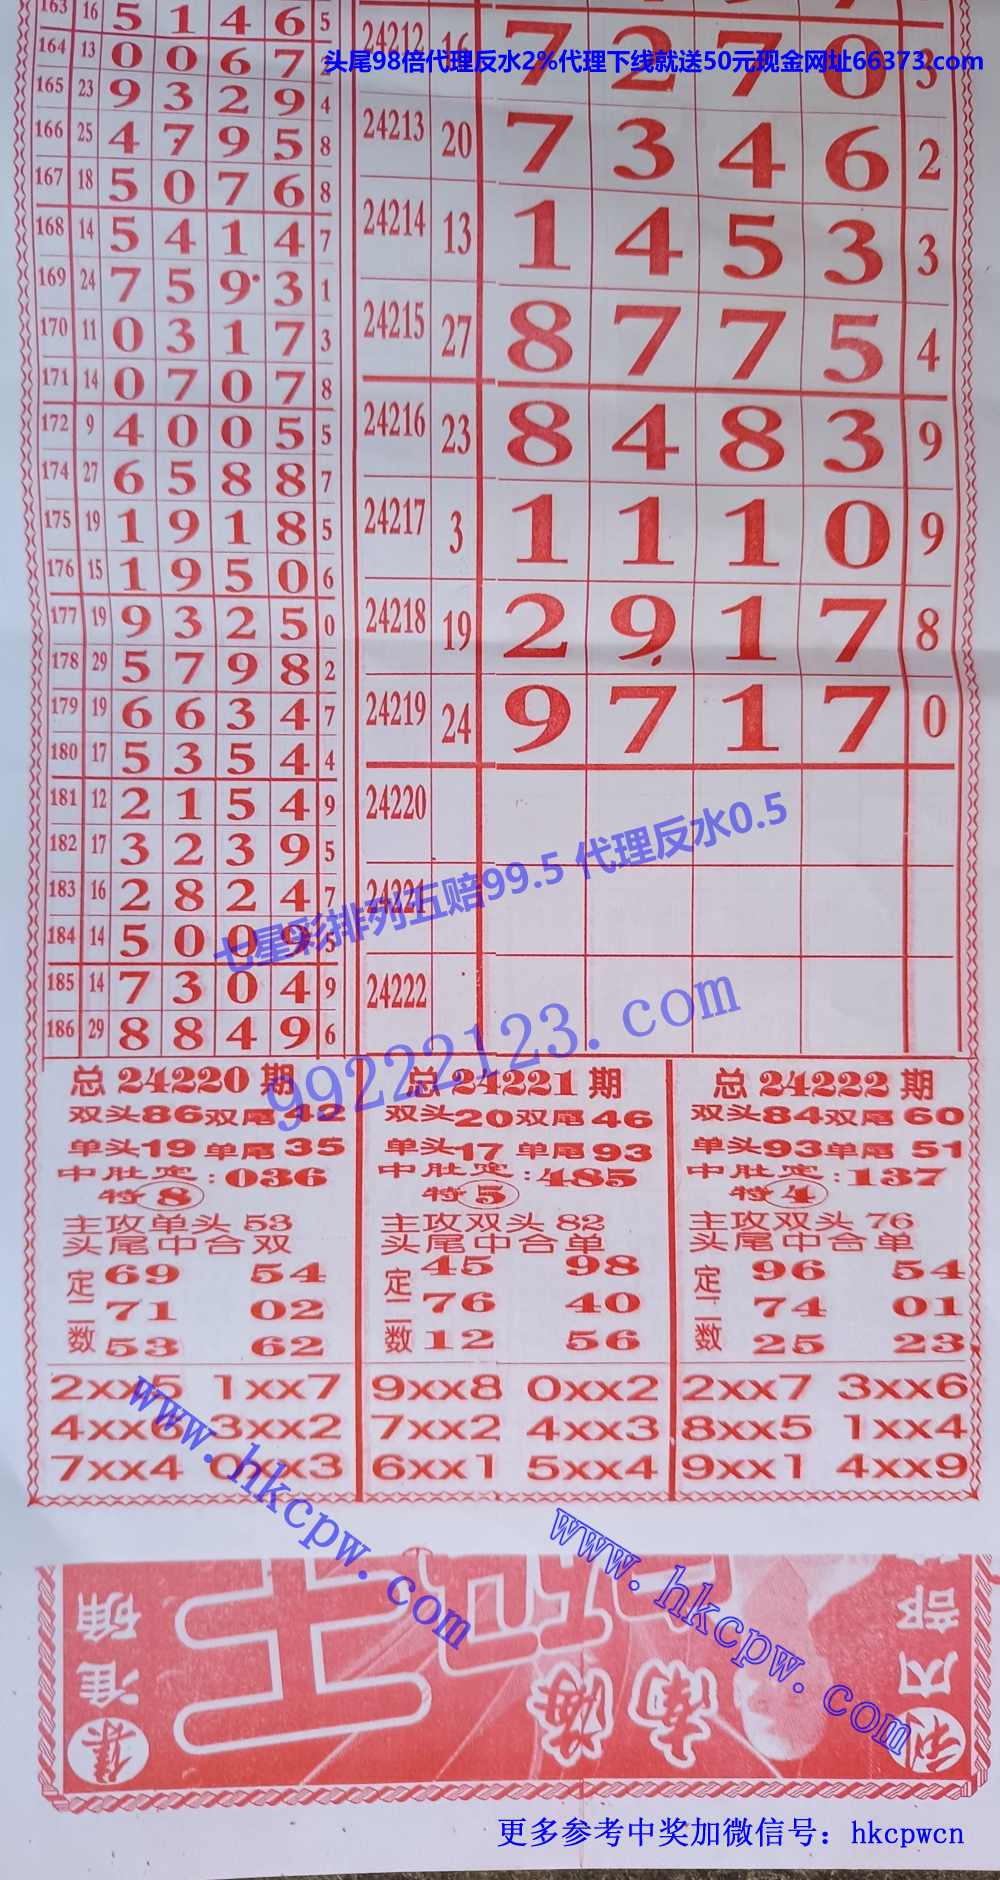 163 16 5 1 4 6 5
164 13 0 0 6 7 2
165 23 9 3 2 9 4
166 25 4 7 9 5 8
167 18 5 0 7 6 8
168 14 5 4 1 4 7
169 24 7 5 9 3 1
170 11 0 3 1 7 3
171 14 0 7 0 7 8
172 9 4 0 0 5 5
174 27 6 5 8 8 7
175 19 1 9 1 8 5
176 15 1 9 5 0 6
177 19 9 3 2 5 0
178 29 5 7 9 8 2
179 19 6 6 3 4 7
180 17 5 3 5 4 4
181 12 2 1 5 4 9
182 17 3 2 3 9 5
183 16 2 8 2 4 7
184 14 5 0 0 9 5
185 14 7 3 0 4 9
186 29 8 8 4 9 6
24212 16 7 2 7 0 3
头尾98倍代理反水2%代理下线就送50元现金网址66373.com
24213 20 7 3 4 6 2
24214 13 1 4 5 3 3
24215 27 8 7 7 5 4
24216 23 8 4 8 3 9
24217 3 1 1 1 0 9
24218 19 2 9 1 7 8
24219 24 9 7 1 7 0
24220
24221
24222
七星彩排列五赔99.5 代理反水0.5
99222123.com
总24220期
双头86双尾42
单头19单尾35
中肚定:036
特8
主攻单头53
头尾中合双
定二数
69 54
71 02
53 62
2xx5 1xx7
4xx6 3xx2
7xx4 0xx3
总24221期
双头20双尾46
单头17单尾93
中肚定:485
特5
主攻双头82
头尾中合单
定二数
45 98
76 40
12 56
9xx8 0xx2
7xx2 4xx3
6xx1 5xx4
总24222期
双头84双尾60
单头93单尾51
中肚定:137
特4
主攻双头76
头尾中合单
定二数
96 54
74 01
25 23
2xx7 3xx6
8xx5 1xx4
9xx1 4xx9
www.hkcpw.com
www.hkcpw.com
海南
王
准确
内部
更多参考中奖加微信号：hkcpwcn